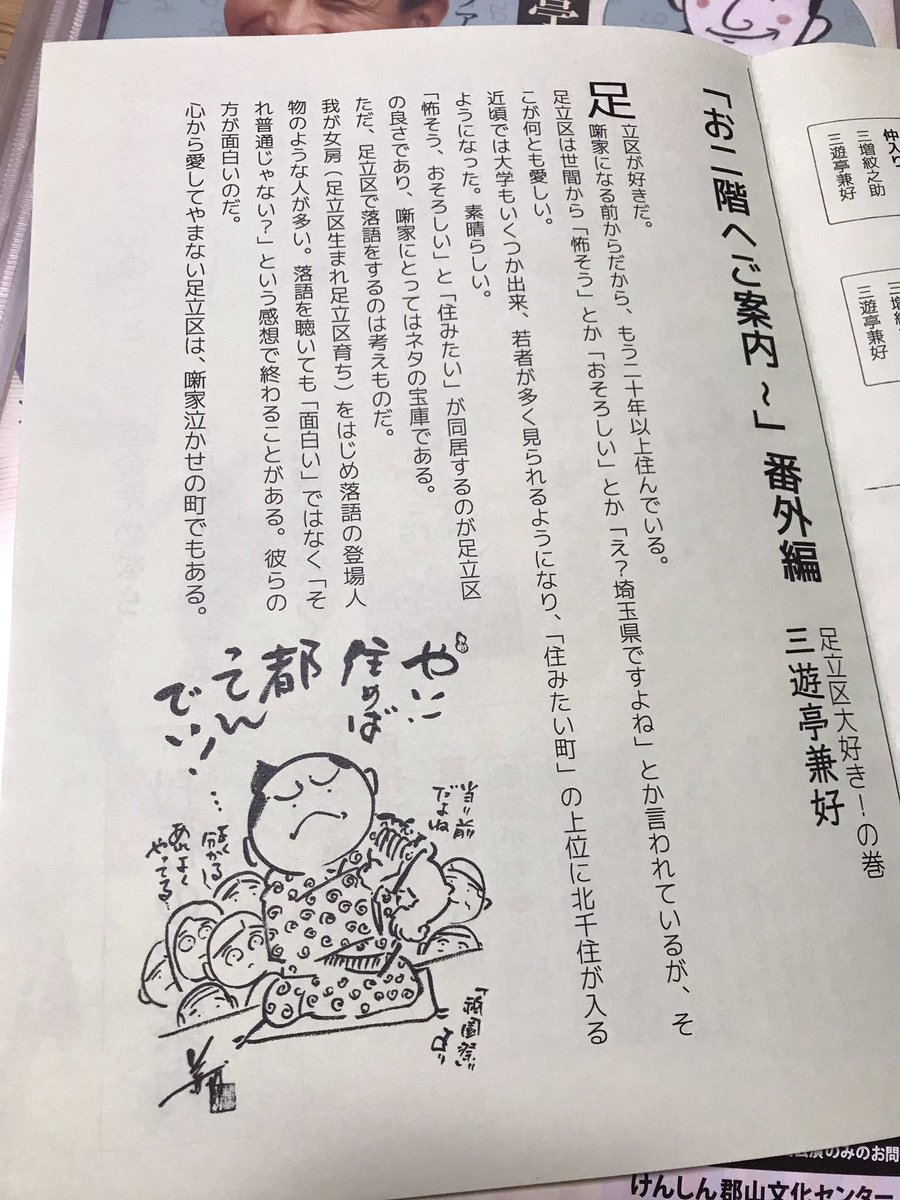 「お二階へご案内〜」番外編
足立区大好き!の巻
三遊亭兼好
足立区が好きだ。
噺家になる前からだから、もう二十年以上住んでいる。
足立区は世間から「怖そう」とか「おそろしい」とか「え?埼玉県ですよね」とか言われているが、そ
こが何とも愛しい。
近頃では大学もいくつか出来、若者が多く見られるようになり、「住みたい町」の上位に北千住が入る
ようになった。素晴らしい。
「怖そう、おそろしい」と「住みたい」が同居するのが足立区
の良さであり、噺家にとってはネタの宝庫である。
ただ、足立区で落語をするのは考えものだ。
我が女房(足立区生まれ足立区育ち)をはじめ落語の登場人
物のような人が多い。落語を聴いても「面白い」ではなく「そ
れ普通じゃない?」という感想で終わることがある。彼らの
方が面白いのだ。
心から愛してやまない足立区は、噺家泣かせの町でもある。
やい!
住めば
都
てん
でい!…
当り前
だよね
よく
分かるし
あれよく
やってる
仲入り
三増紋之助
三遊亭兼好
三遊亭兼好
のみのお問
けんしん郡山文化センター